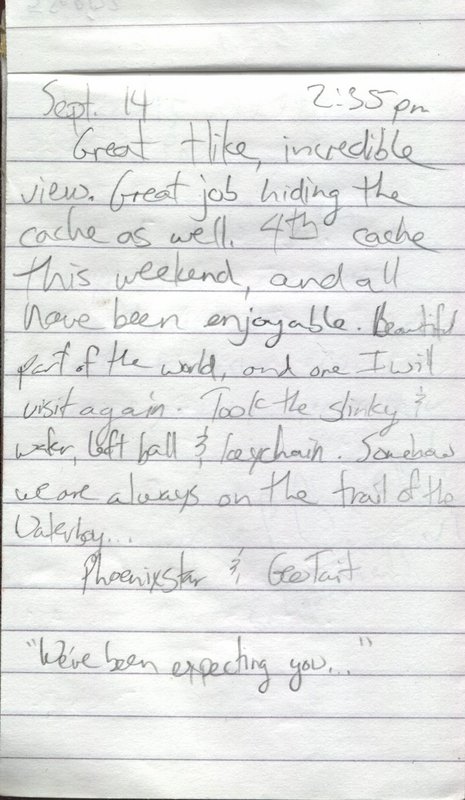 Sept. 14 2:35 pm
Great Hike, incredible
view. Great job hiding the
cache as well. 4th cache
this weekend, and all
have been enjoyable. Beautiful
part of the world, and one I will
visit again. Took the slinky &
water, left ball & keychain. Somehow
we are always on the trail of the
Waterboy...
Phoenixstar & GeoTait
"We've been expecting you..."